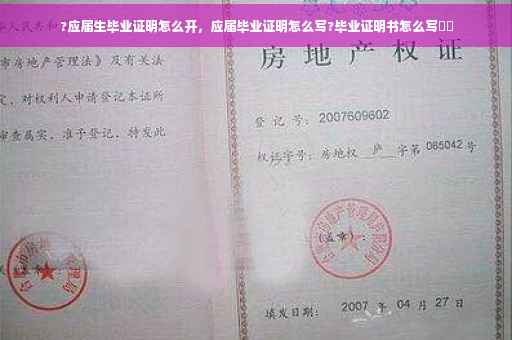 ?应届生毕业证明怎么开，应届毕业证明怎么写?毕业证明书怎么写
人民共和
市房地产管理法》及有关法
定，对权利人申请登记本证所
审查属实，准予登记，特发此
房地产权
登记号：2007609602
权证字号：房地权 庐 字第 065042 号
（盖章）：
填发日期： 2007 年 04 月 27 日